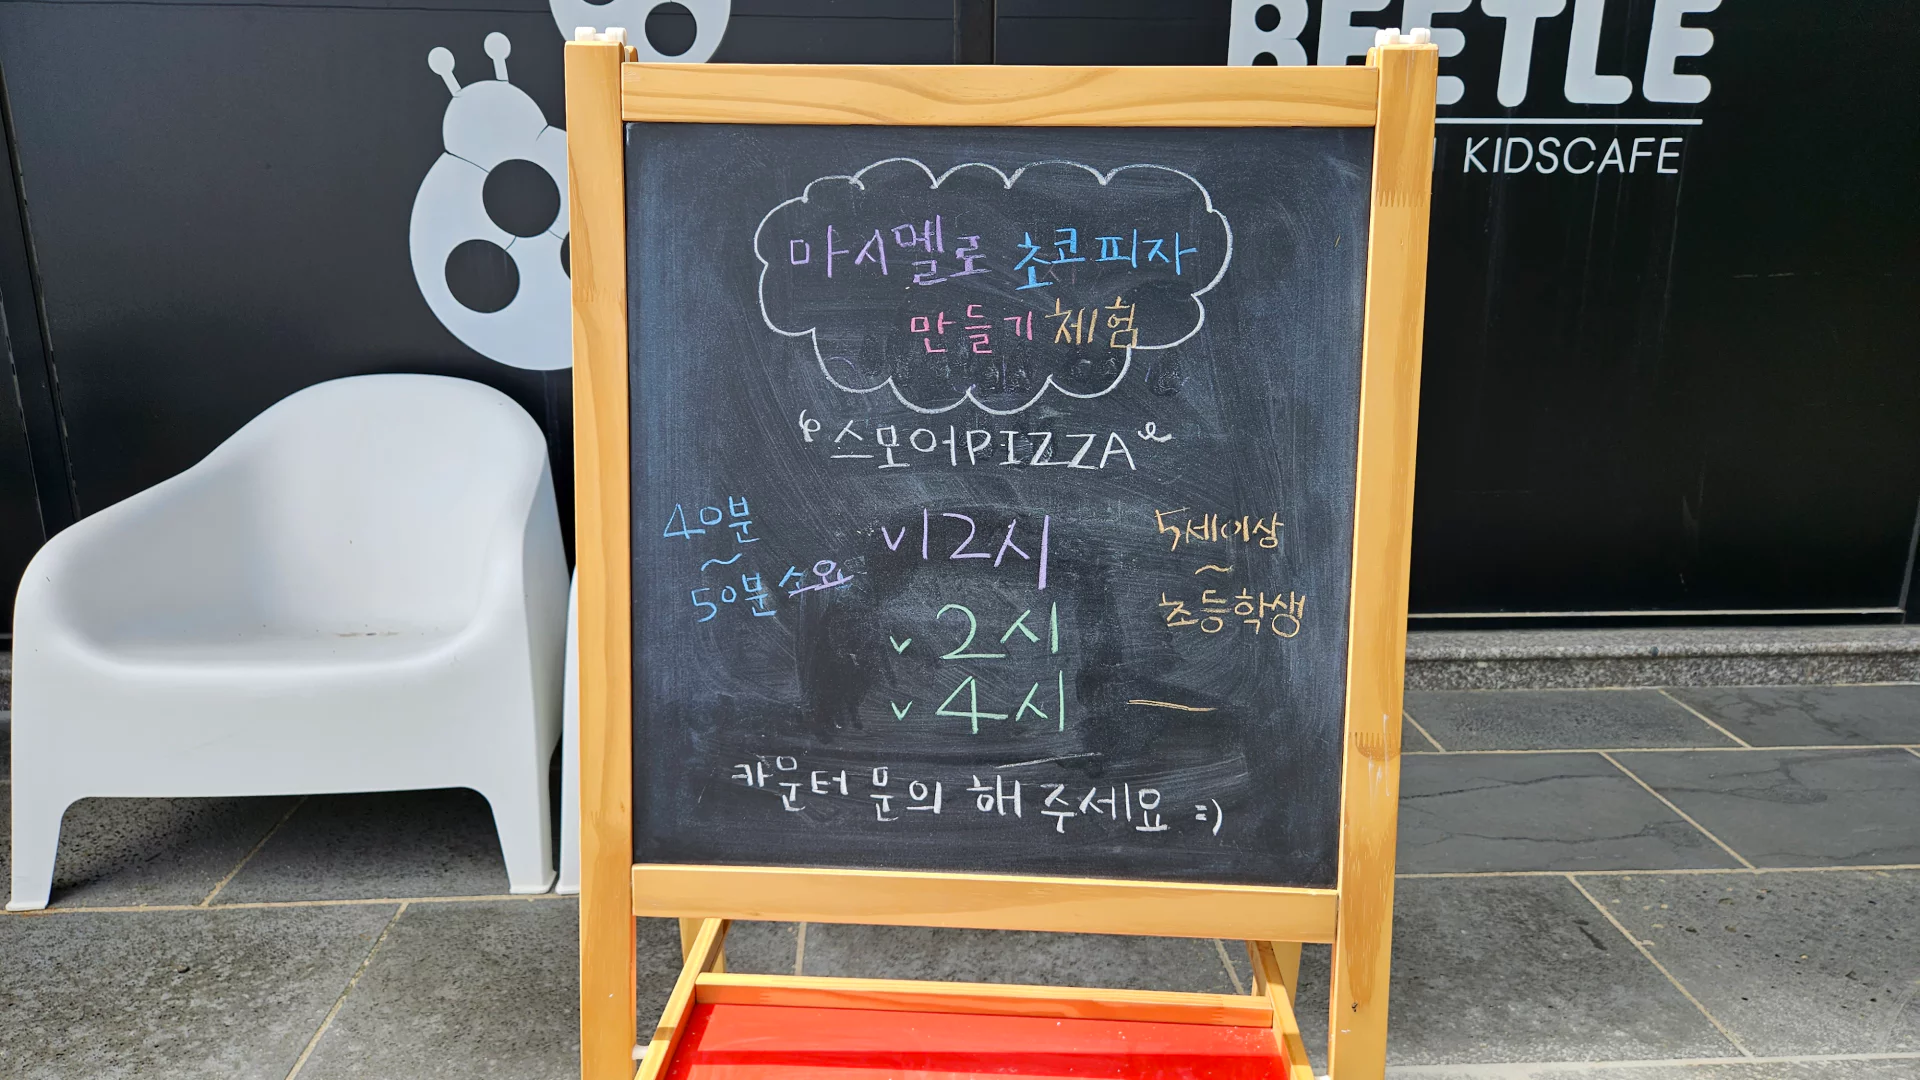 BEETLE
KIDSCAFE
마시멜로 초코피자
만들기 체험
스모어PIZZA
40분
~
50분 소요
v12시
v 2시
v 4시
5세이상
~
초등학생
카운터 문의 해 주세요 :)